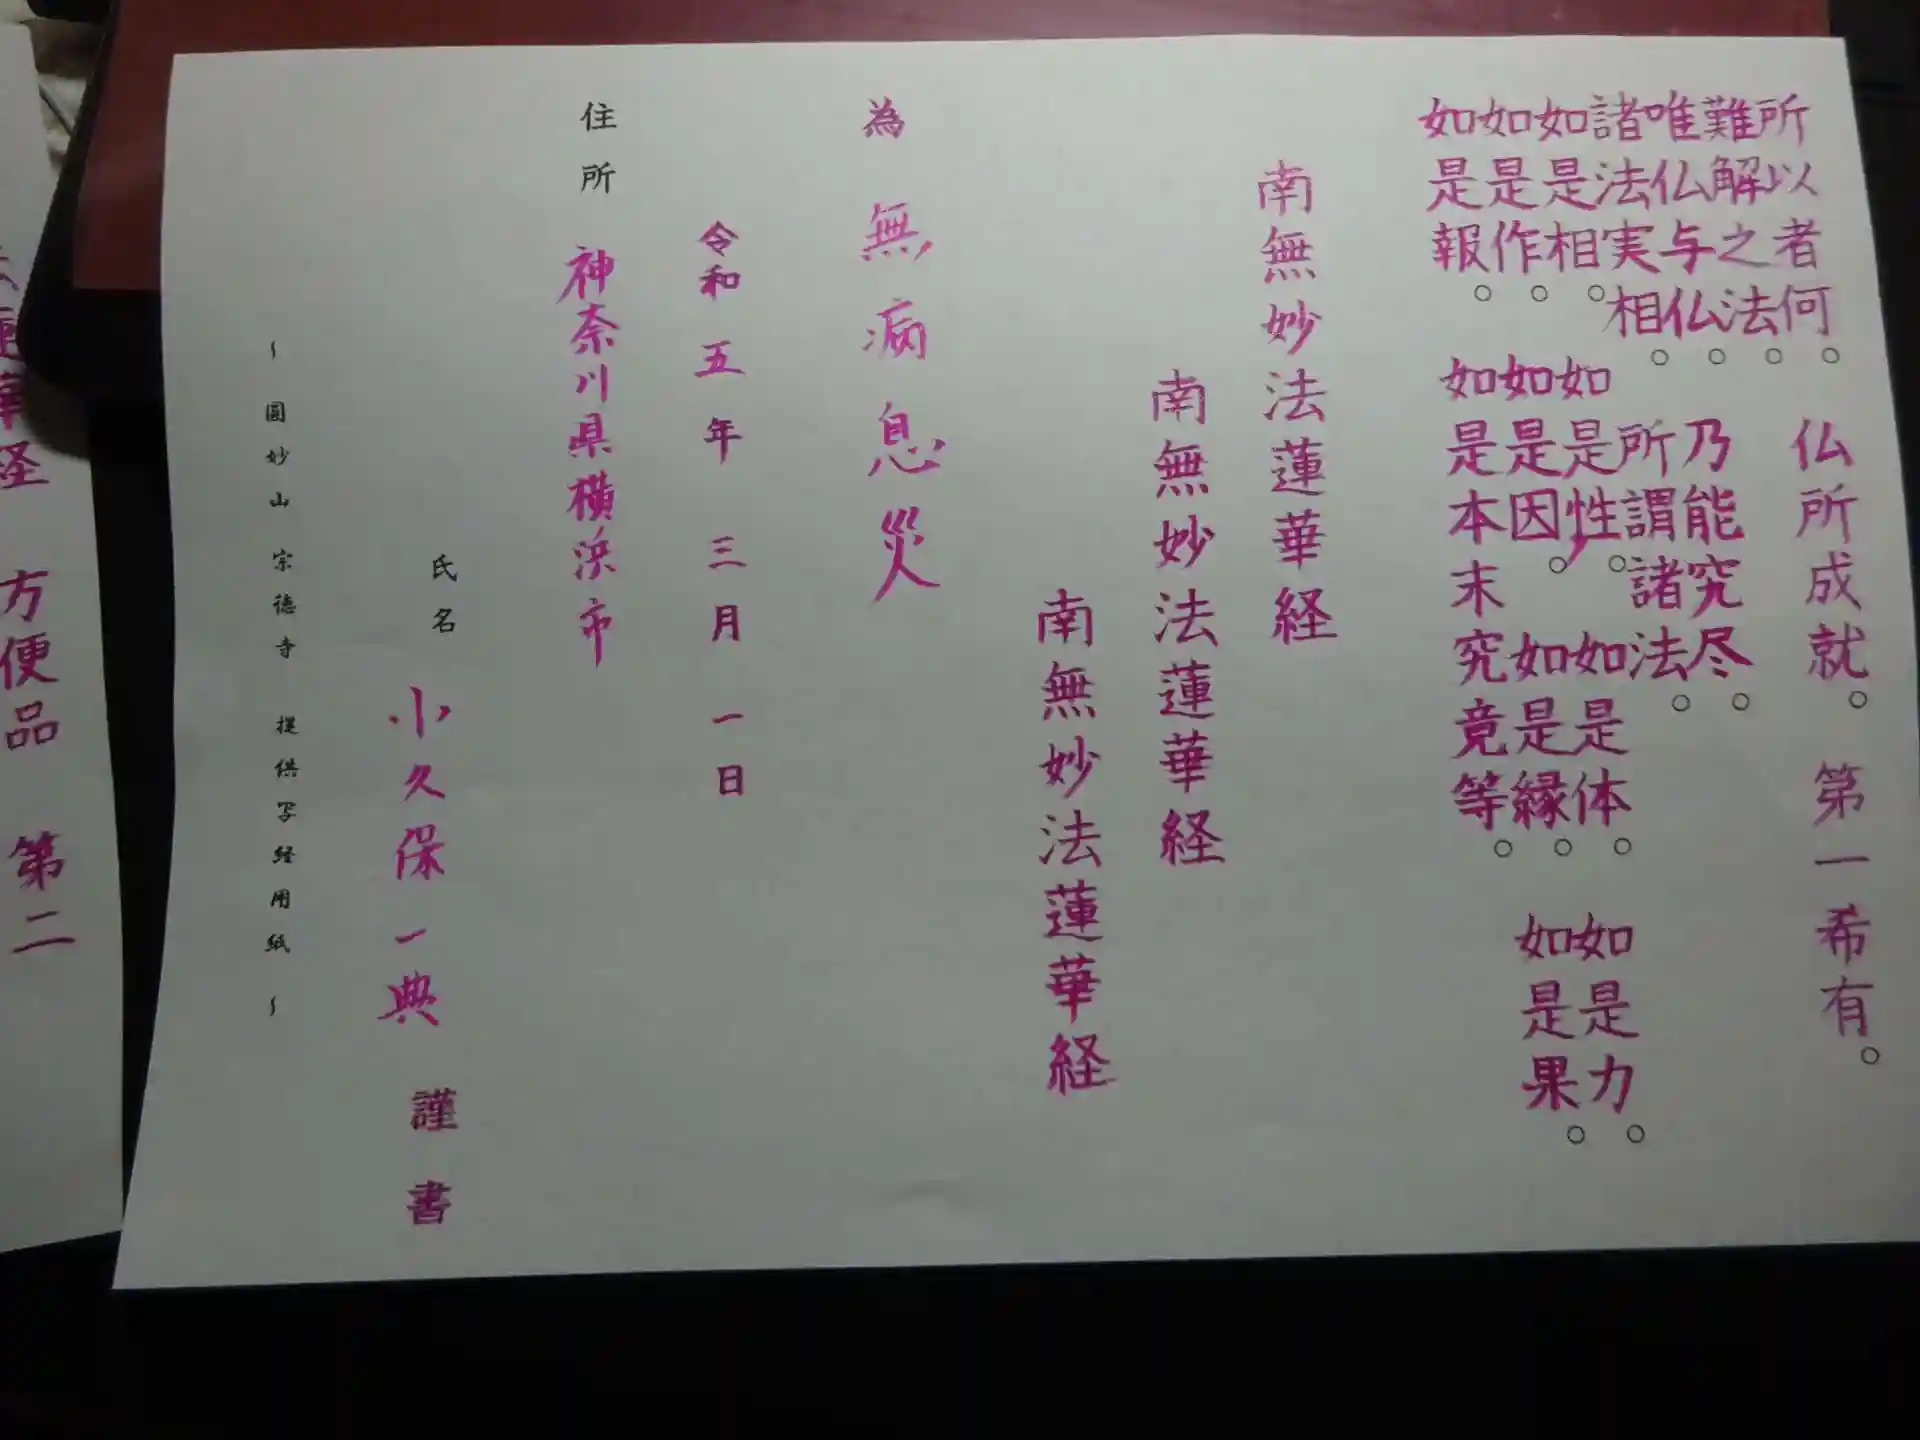 所以者何。仏所成就。第一希有。
難解之法。
唯仏与仏。乃能究尽。
諸法実相。所謂諸法。
如是相。如是性。如是体。如是力。
如是作。如是因。如是縁。如是果。
如是報。如是本末究竟等。
南無妙法蓮華経
南無妙法蓮華経
南無妙法蓮華経
為 無病息災
令和五年 三月 一日
住所 神奈川県横浜市
氏名 小久保一典 謹書
~ 圓妙山 宗徳寺 提供写経用紙 ~
蓮華経 方便品 第二